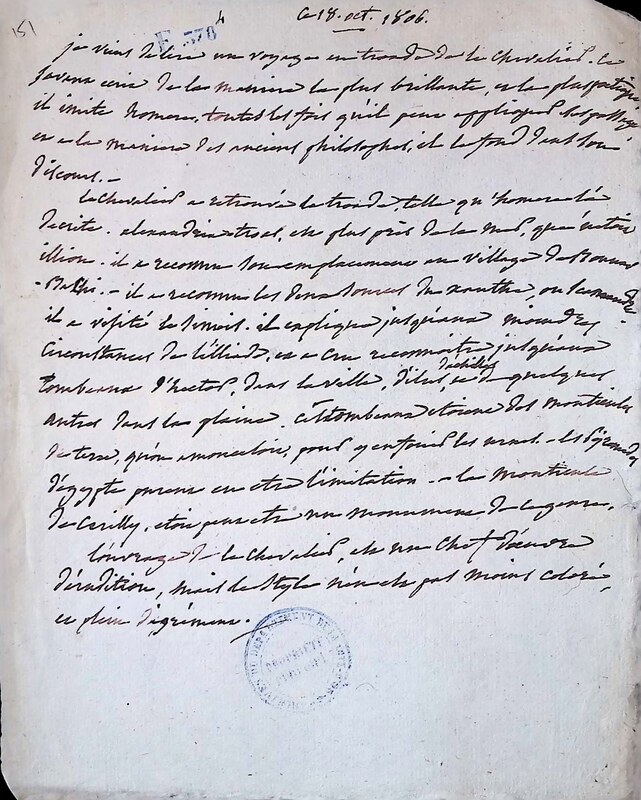 151
4
ce 18. oct. 1806.
F 378
je viens de lire un voyage en troade de le chevalier. ce
savant écrit de la manière la plus brillante, et la plus poétique
il imite homere, toutes les fois qu'il peut appliquer les passages
et a la maniere des anciens philosophes, il le fond dans son
discours. –
le chevalier a retrouvé la troade telle qu'homere l'a
decrite. alexandria troas, est plus près de la mer, que n'etoit
illion. il a reconnu son emplacement au village de Bounar
-Bachi. – il a reconnu les deux sources du xanthe, ou scamandre
il a visité le simois. il explique jusqu'aux moindres
circonstances de l'illiade, et a cru reconnaitre jusqu'aux
tombeaux d'hector, dans la ville, d'ilus, d'achille, et de quelques
autres dans la plaine. ces tombeaux etoient des monticules
de terre, qu'on amonceloit, pour y enfouir les urnes. – les pyramides
d'egypte purent en etre l'imitation. – le monticule
de Cerilly, etoit peut etre un monument de ce genre.
l'ouvrage de le chevalier, est un chef d'œuvre
d'érudition, mais le style n'en est pas moins coloré,
et plein d'agrément.
ARCHIVES DU DEPARTEMENT DE LA
PROPRIÉTÉ PUBLIQUE